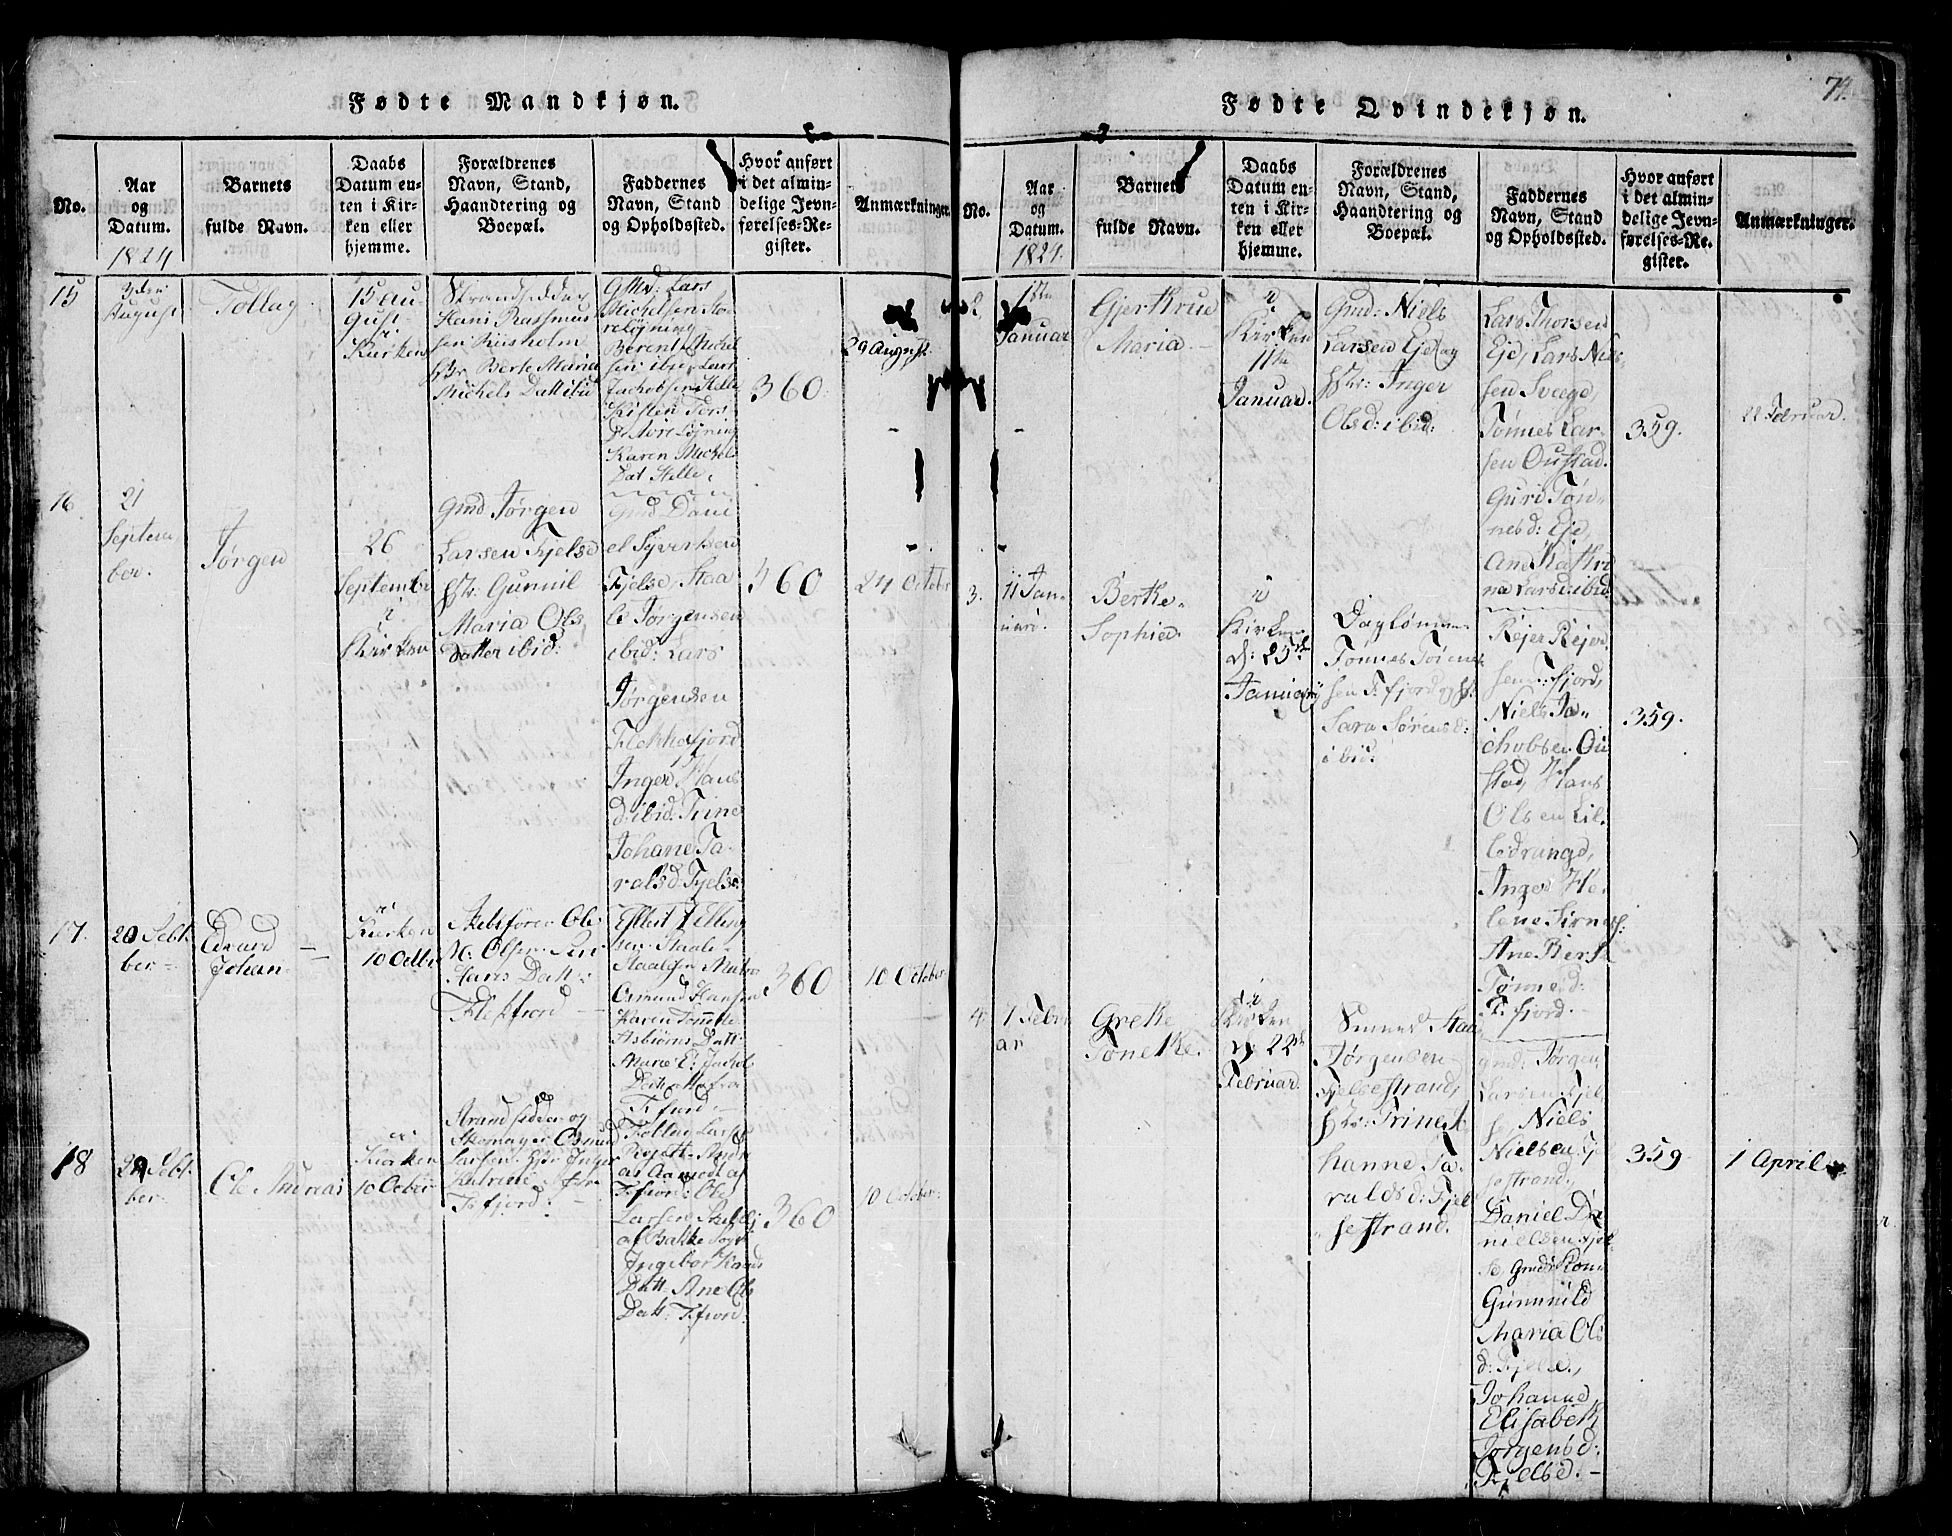 Fødte Mandkjøn.
No.
Aar
og
Datum.
1824
Barnets
fulde Navn.
Daabs
Datum en-
ten i Kir-
ken eller
hjemme.
Forældrenes
Navn, Stand,
Haandtering og
Boepæl.
Faddernes
Navn, Stand
og Opholdssted.
Hvor anført
i det almin-
delige Jevn-
førelses-Re-
gister.
Anmærkninger.
15
3den
August
Tollag
15 Au-
gust
i
Kirken
Strandsidder
Hans Rasmus
sen Riisholm
Hstr Berte Maria
Michels Datt ibid
Gmd: Lars
Michelsen Sto
re Løyning
Berent Michel
sen ibid Lars
Jachobsen Stelle
Kisten Tors
D. Store Løyning
Karen Michels
Dat Stelle.
360
29 August
16
21
Septem
ber.
Jørgen
26
September
i
Kirken
Gmd Jørgen
Larsen Fjelse
Hstr: Gunnil
Maria Ols
Datter ibid:
Gmd Dani
el Syvertsen
Fjelse, Staa
le Jørgensen
ibid: Lars
Jørgensen
Flekkefjord
Inger Hans
d: ibid: Trine
Johane Ta-
ralsd: Fjelse
360
24 Octobr
17.
20 Sebt
ber-
Edvard
Johan-
i
Kirken
10 Octbr
Ole
N: Olsen
Hans Datt:
Flekfiord
Elling
sen Staale
Staalesen
Osmund Hansen
Karen Tomine
Asbiørns Datt
Marie E: Jacobs
Datt alle fra
F: fiord.
360
10 October
18
29 Sebt
ber-
Ole Andreas
i
Kirken
10 Octber
Strandsidder og
Skomager Osmund
Larsen: Hstr Inger
F: fjord:
Tollac Larsen
Andre
as Aamodt af
F: fiord: Ole
Larsen
af Bakke Sogn
Ingebor
Datt. Ane Ols
Datt: F: fiord.
360
10 October
Fødte Qvindekjøn.
74.
No.
Aar
og
Datum.
1824.
Barnets
fulde Navn.
Daabs
Datum en-
ten i Kir-
ken eller
hjemme.
Forældrenes
Navn, Stand,
Haandtering og
Boepæl.
Faddernes
Navn, Stand
og Opholdssted.
Hvor anført
i det almin-
delige Jevn-
førelses-Re-
gister.
Anmærkninger.
2.
1ste
Januar
Gjerthrud
Maria.
i
Kirken
11te
Januar.
Gmd: Niels
Larsen Eje og
Hstr: Inger
Olsd: ibid:
Lars Thorsen
Eje, Lars Niel
sen Svege,
Tønnes Lar-
sen Oustad.
Guri Tøn-
nesd: Eje,
Ane Kathri
na Larsd: ibid.
359.
22 Februar.
3.
11 Jan-
uar.
Berthe
Sophia.
i
Kirken
d: 25de
Januarÿ
Dagløn
Tønnes Tønnes
sen F: fjord og Hst:
Sara Sørensd:
ibid:
Rejer Rejer
sen F: fjord,
Niels Ja-
chobsen Ou
stad, Hans
Olsen Lil-
ledrange,
Inger He-
lene
Ane Berth
Tønnesd:
F: fjord.
359.
4.
1 Febr
ar
Grethe
Tonette.
i
Kirken
d: 22de
Februar.
Staa
Jørgensen
Fjelsestrand,
Hstr: Trine
hanne Ta-
raldsd: Fjel
sestrand.
gmd: Jørgen
Larsen Fjel
se, Niels
Nielsen Fjel
sestrand,
Daniel Da
nielsen Fjel-
se, Gmds Kone
Gunnild
Maria Ols
d: Fjelse,
Johanne
Elisabeth
Jørgensd:
Fjelse.
359
1 April